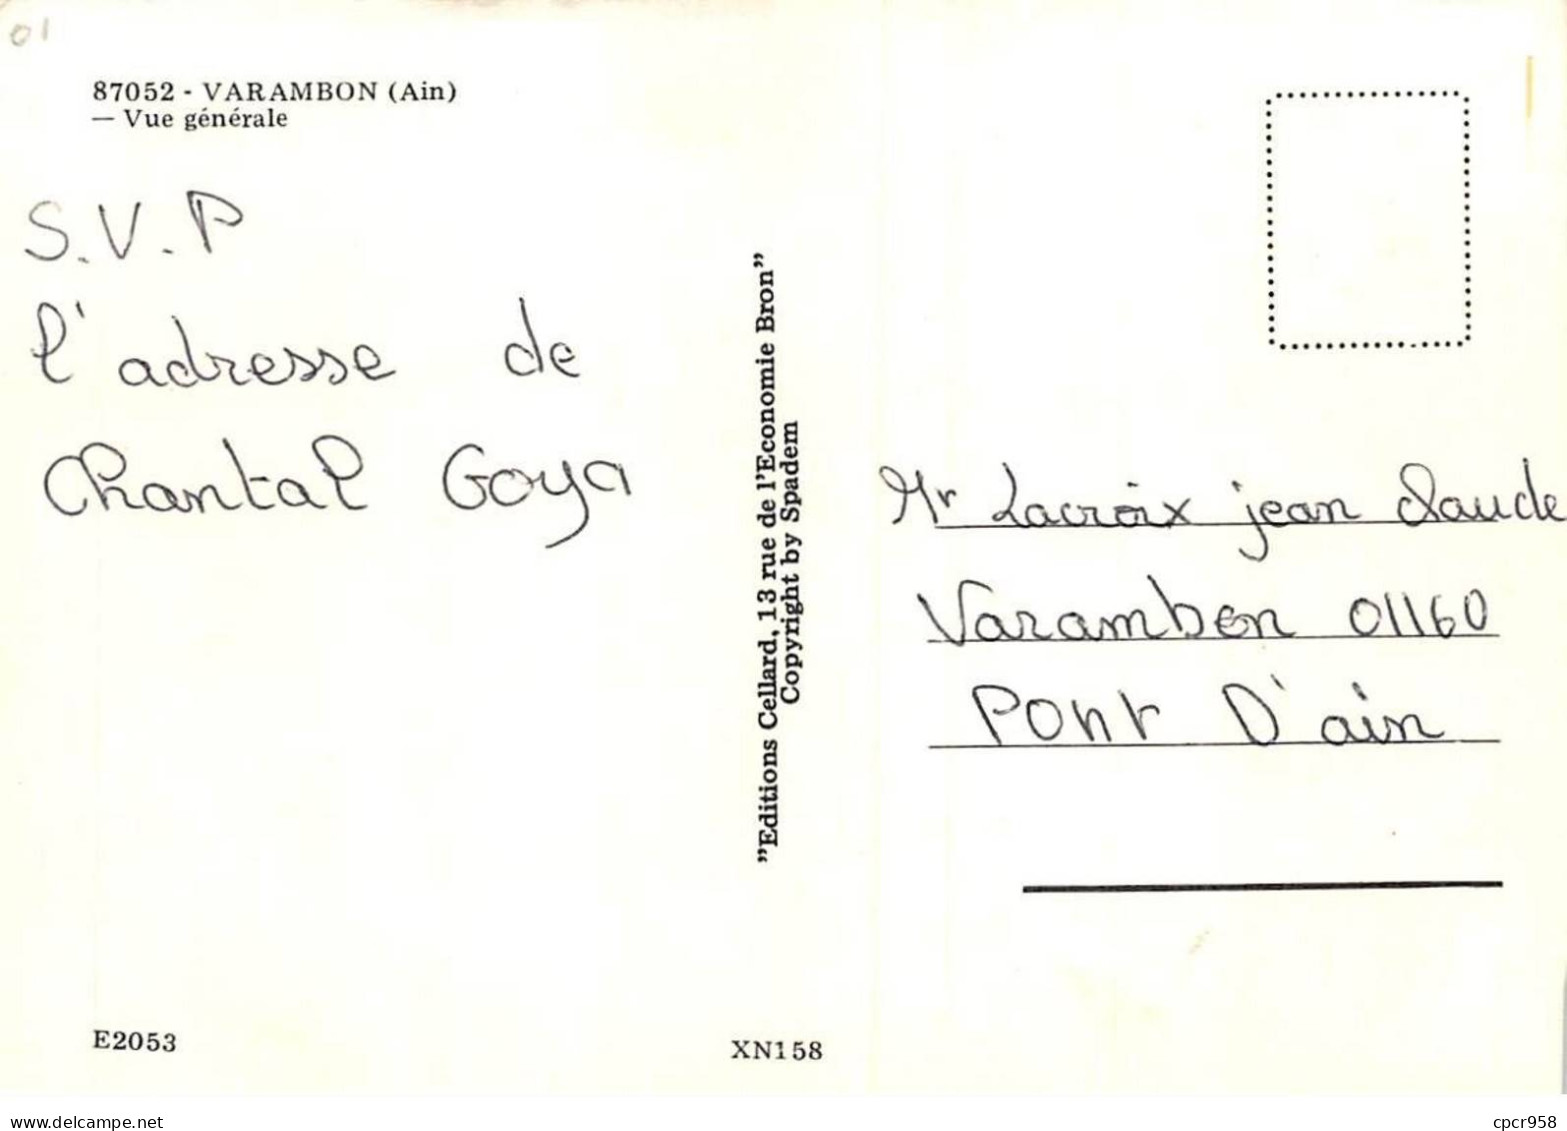 01
87052 - VARAMBON (Ain)
— Vue générale
S.V.P
l'adresse de
Chantal Goya
"Editions Cellard, 13 rue de l'Economie Bron"
Copyright by Spadem
Mr Lacroix jean claude
Varambon 01160
Pont D'ain
E2053
XN158
www.delcampe.net
cpcr958